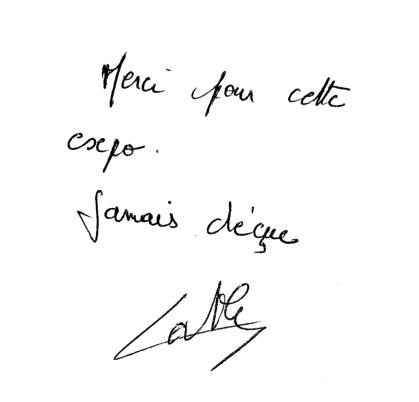 Merci pour cette
expo.
Jamais déçue